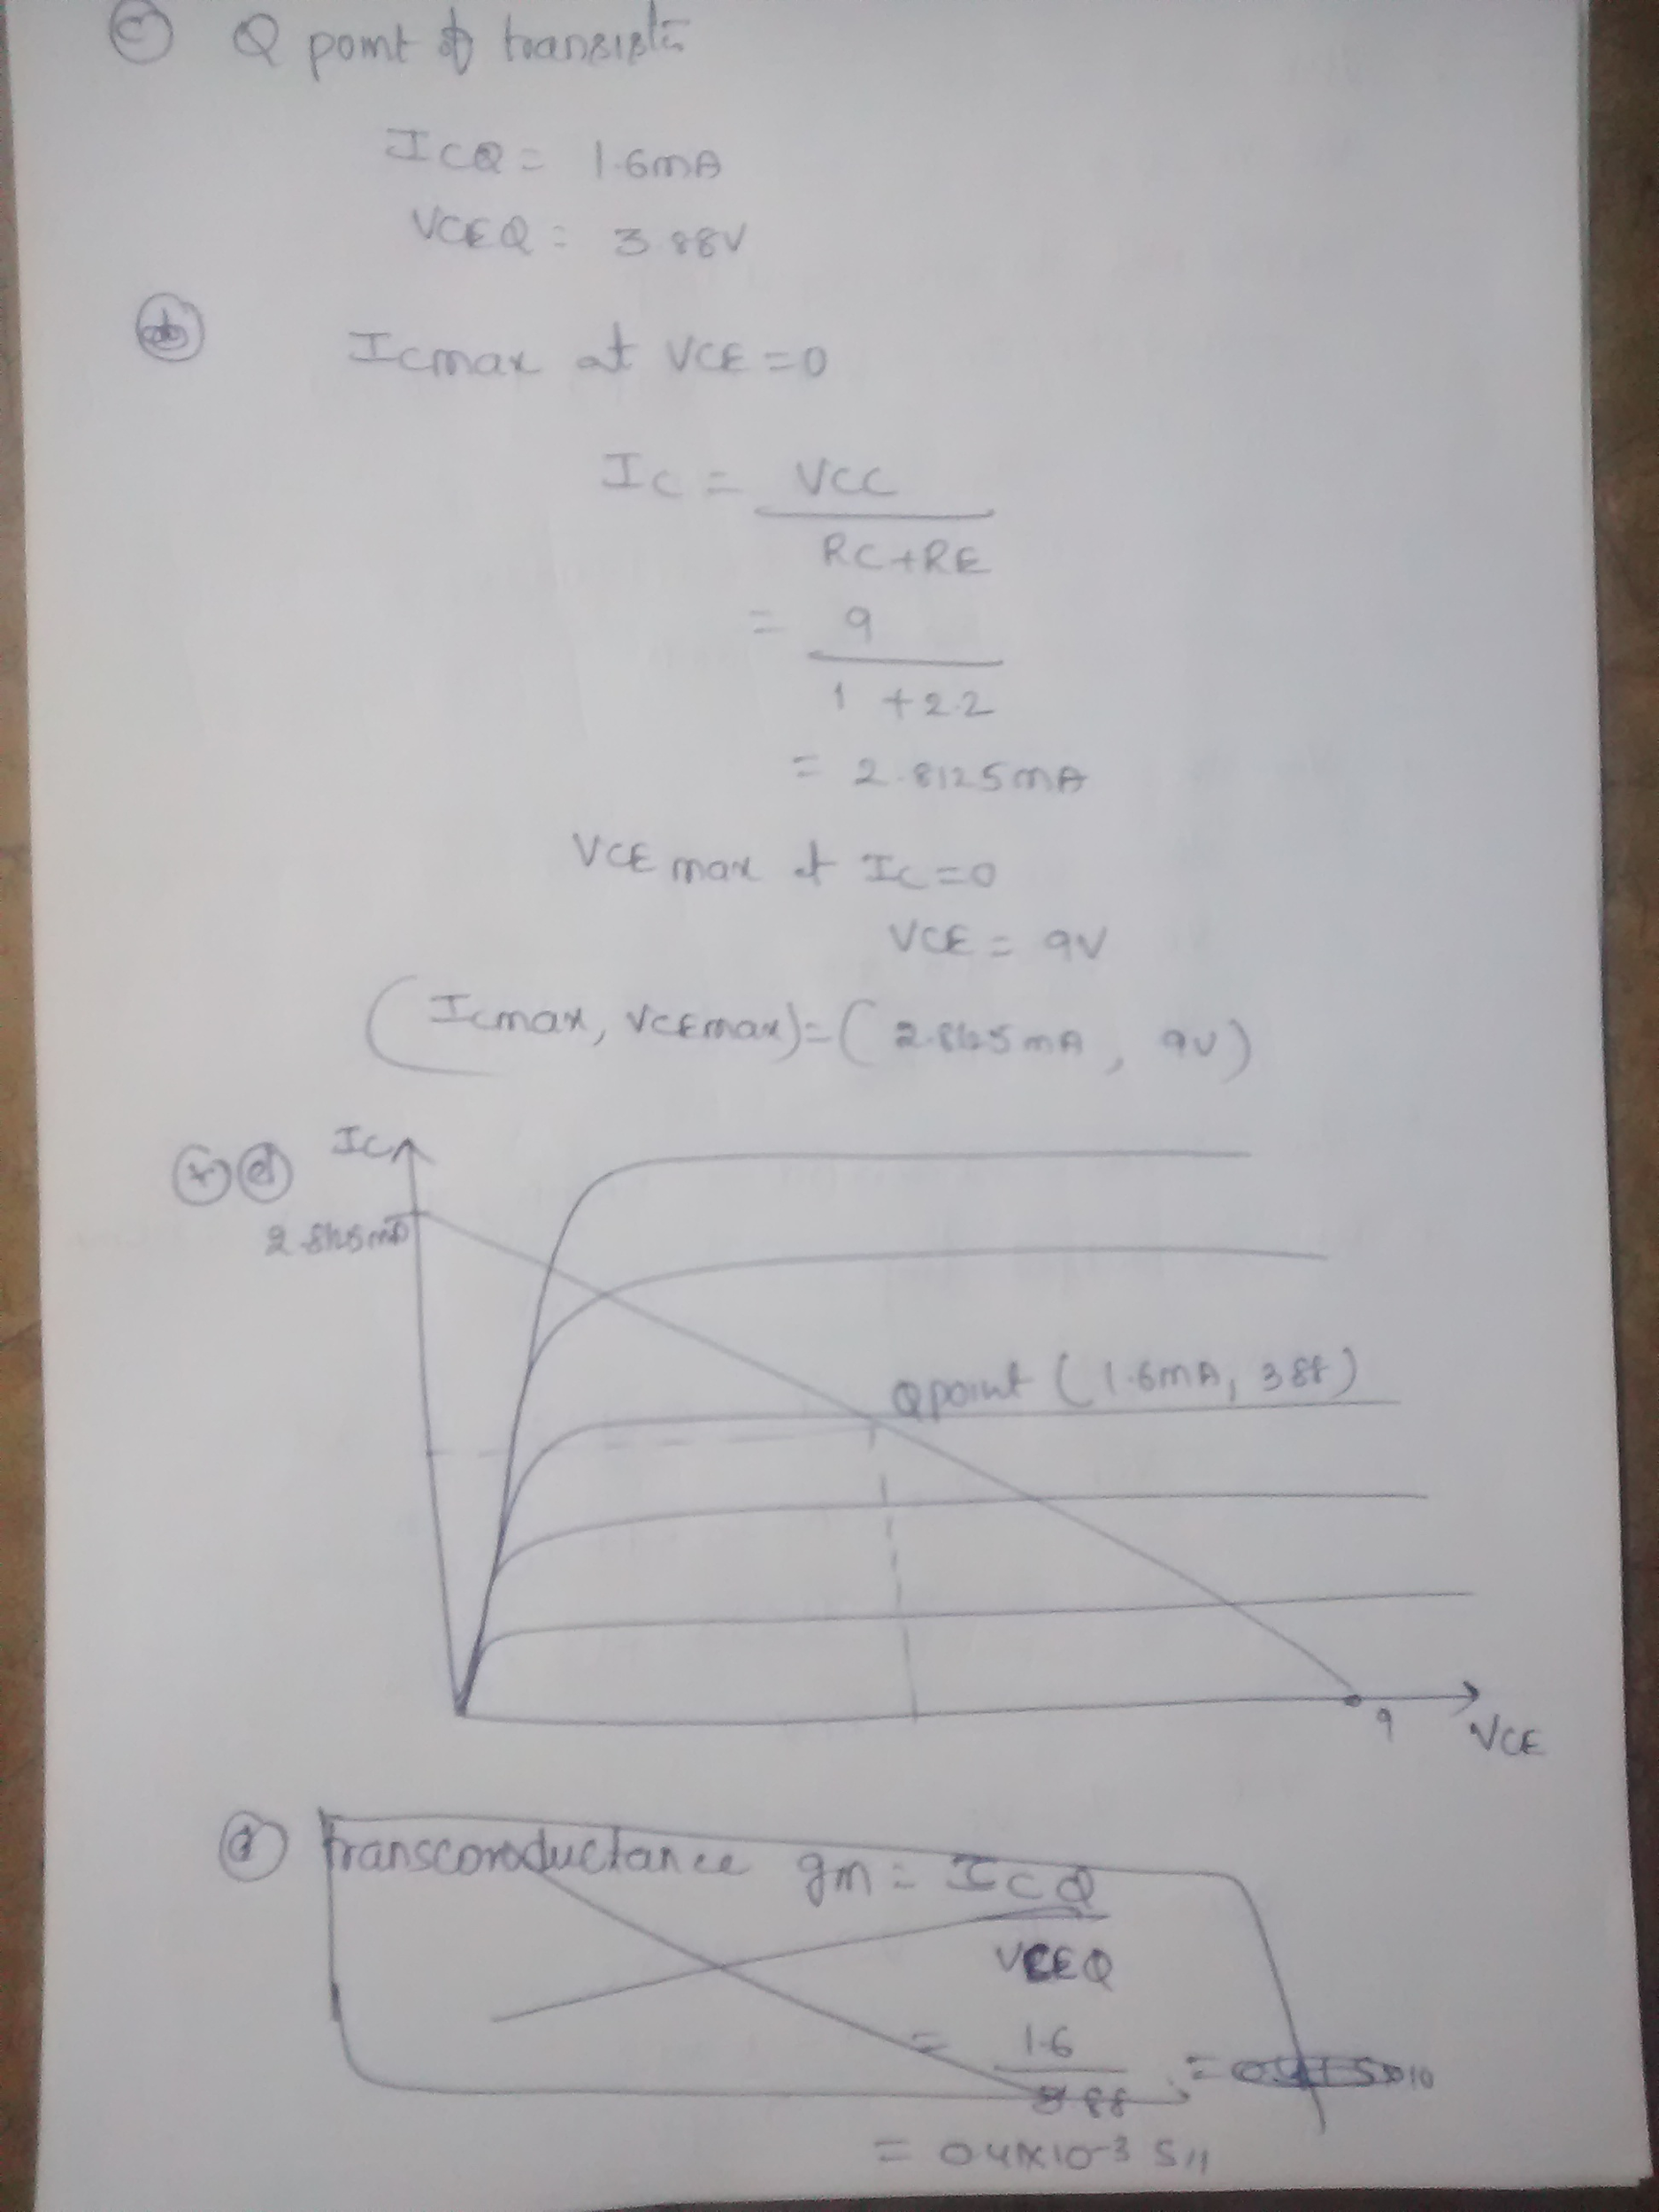 Q point of transistor
ICQ = 1.6mA
VCEQ = 3.88V
Icmax at VCE = 0
IC = VCC
RC+RE
= 9
1 + 2.2
= 2.8125mA
VCE max at IC = 0
VCE = 9V
(Icmax, VCEmax) = (2.8125mA, 9V)
IC
2.8125mA
Q point (1.6mA, 3.88)
9
VCE
transconductance gm = ICQ
VCEQ
= 1.6
3.88
= 0.41x10-3 S